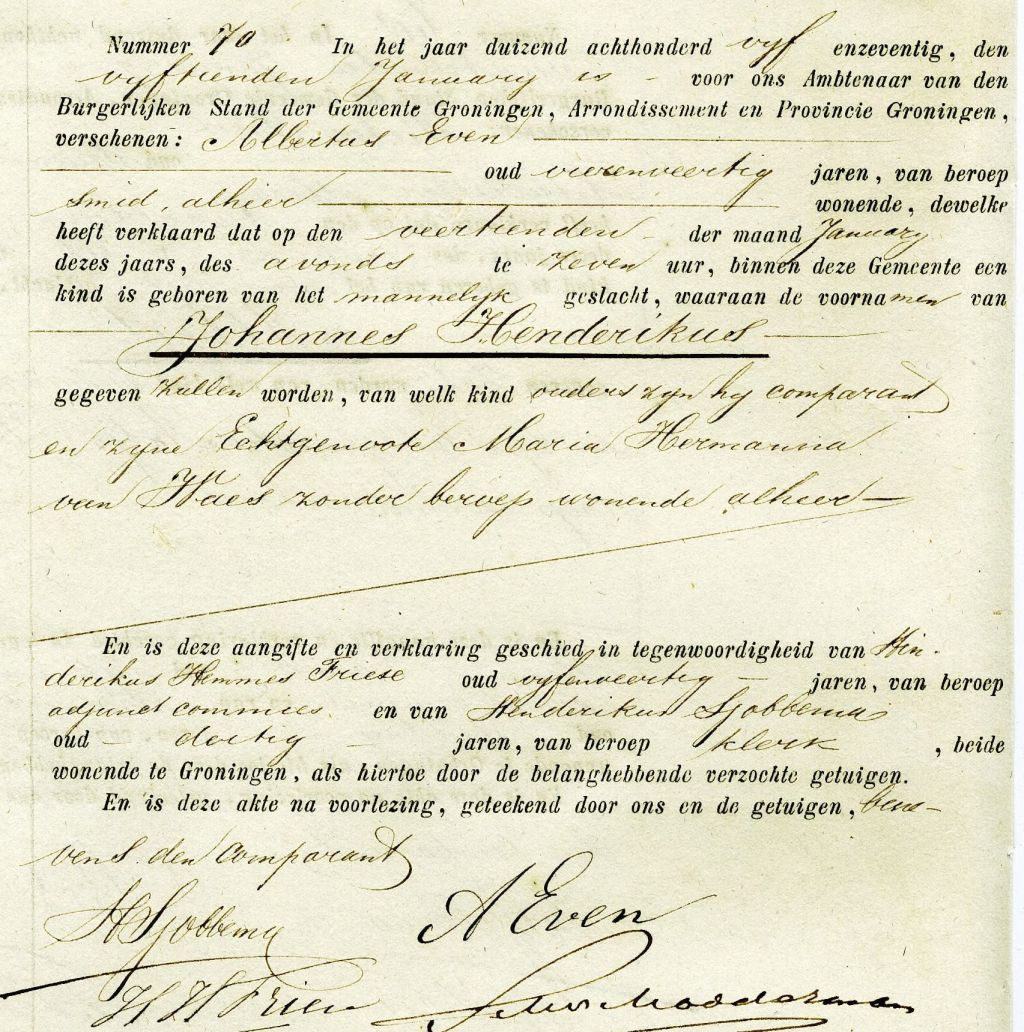 Nummer 70 In het jaar duizend achthonderd vyf enzeventig, den
vyftienden January is - voor ons Ambtenaar van den
Burgerlijken Stand der Gemeente Groningen, Arrondissement en Provincie Groningen,
verschenen: Albertus Even
oud vierenveertig jaren, van beroep
smid, alhier wonende, dewelke
heeft verklaard dat op den veertienden der maand January
dezes jaars, des avonds te zeven uur, binnen deze Gemeente een
kind is geboren van het mannelyk geslacht, waaraan de voornamen van
Johannes Henderikus
gegeven zullen worden, van welk kind ouders zyn hy comparant
en zyne Echtgenoote Maria Hermanna
van Waes zonder beroep wonende alhier
En is deze aangifte en verklaring geschied in tegenwoordigheid van Hin-
derikus Hemmes Friese oud vyfenveertig jaren, van beroep
adjunct commies en van Henderikus Sjobbema
oud dertig jaren, van beroep klerk, beide
wonende te Groningen, als hiertoe door de belanghebbende verzochte getuigen.
En is deze akte na voorlezing, geteekend door ons en de getuigen, bene-
vens den comparant
H Sjobbema A Even
H H Friese Modderman